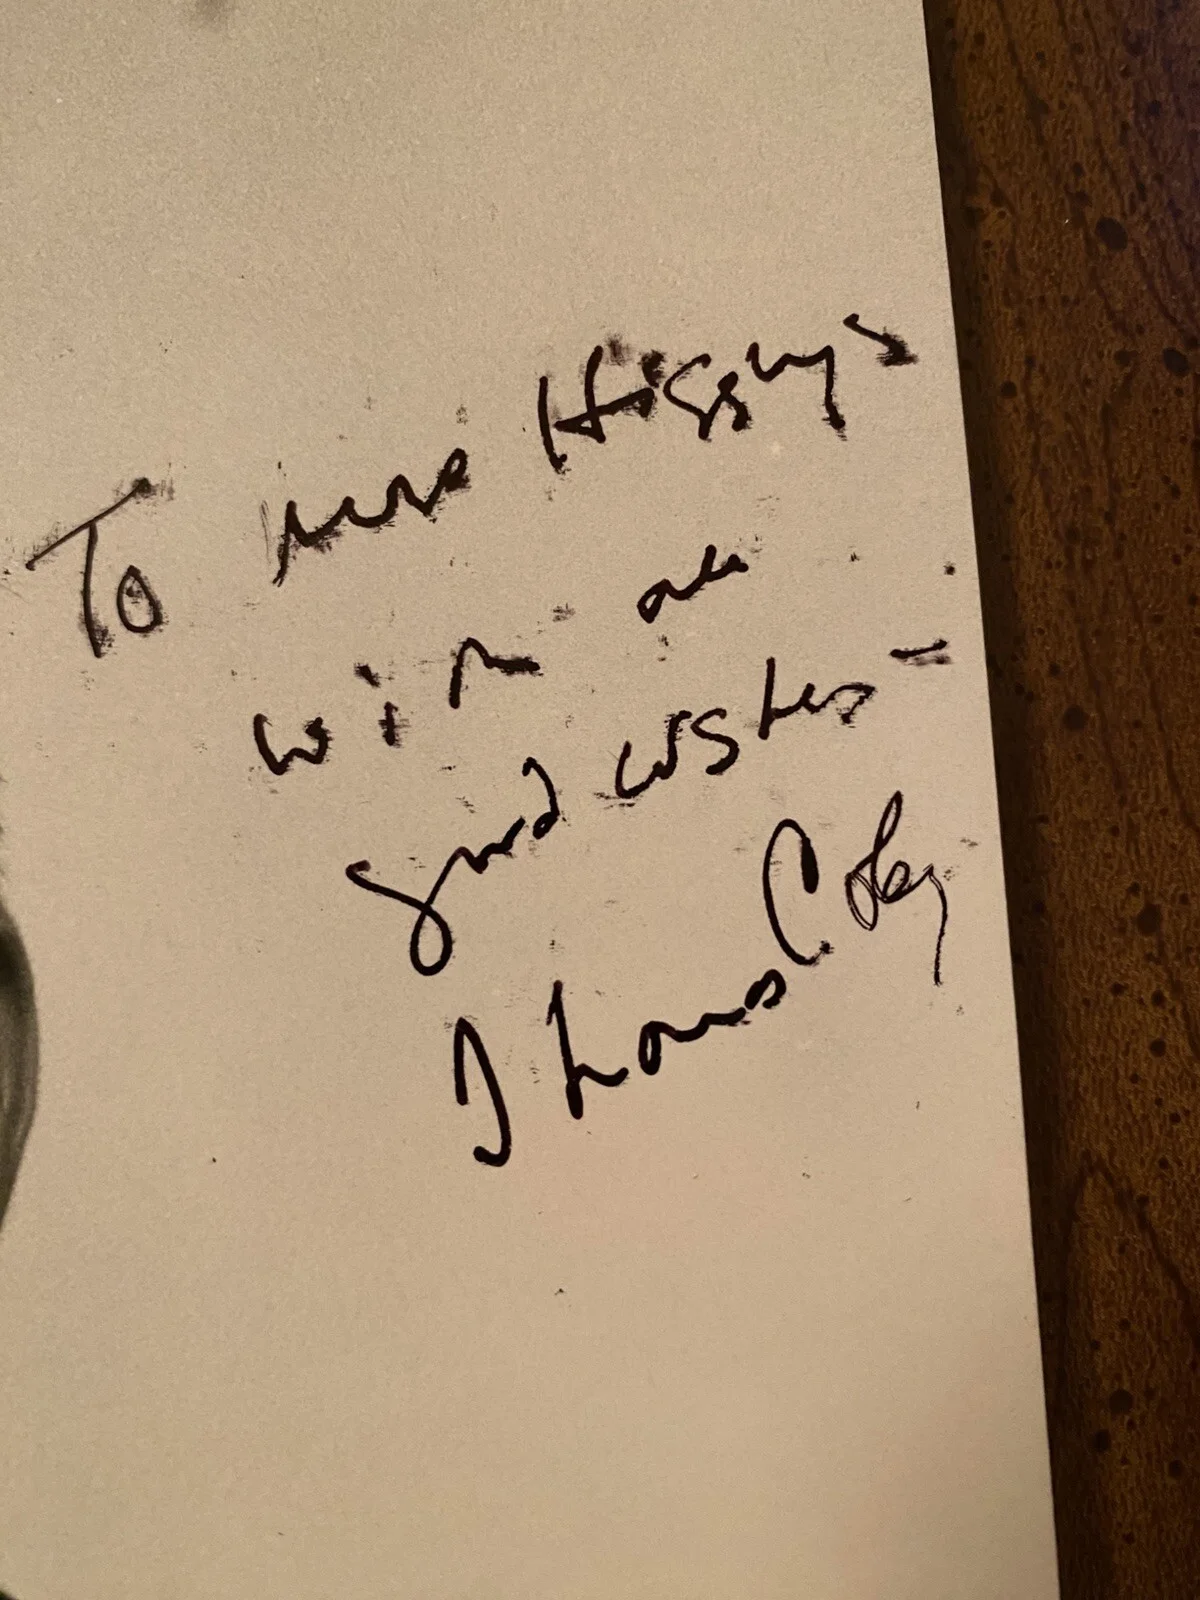 To Mrs Higgins
with all
good wishes –
Thomas Coley